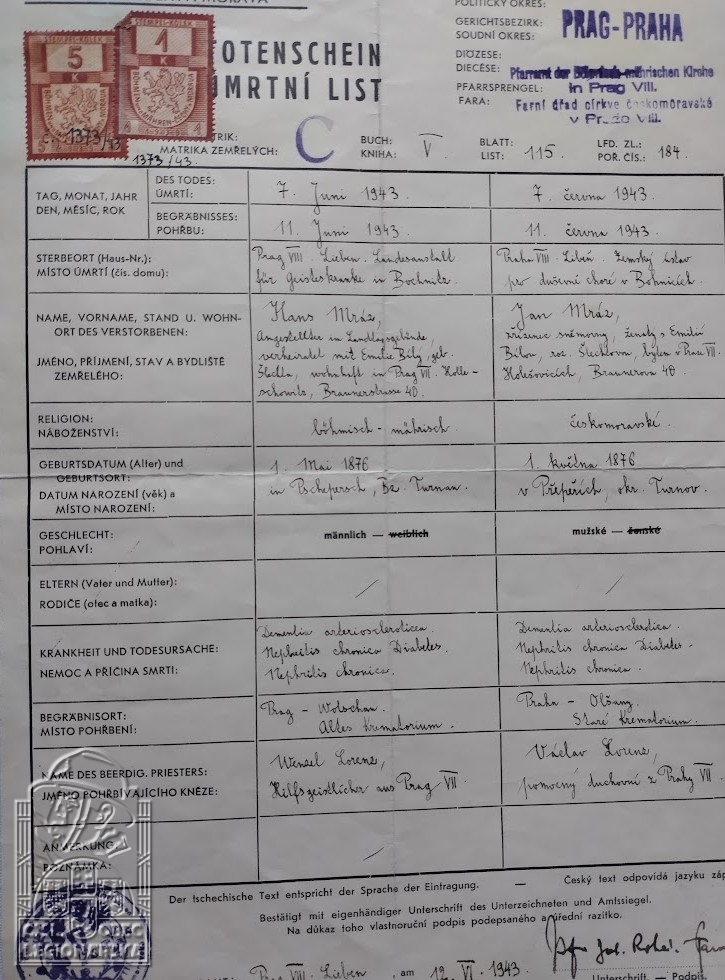 POLITICKÝ OKRES:
GERICHTSBEZIRK:
SOUDNÍ OKRES:
PRAG-PRAHA
STEMPEL-KOLEK
5
K
BÖHMEN
STEMPEL-KOLEK
1
K
BÖHMEN MÄHREN
MORAVA
1373/43
1373/43.
OTENSCHEIN
ÚMRTNÍ LIST
DIÖZESE:
DIECÉSE:
PFARRSPRENGEL:
FARA:
Pfarramt der Böhmisch-mährischen Kirche
in Prag VIII.
Farní úřad církve českomoravské
v Praze VIII.
TRIK:
MATRIKA ZEMŘELÝCH:
C
BUCH:
KNIHA:
V.
BLATT:
LIST:
115.
LFD. ZL.:
POŘ. ČÍS.:
184.
TAG, MONAT, JAHR
DEN, MĚSÍC, ROK
DES TODES:
ÚMRTÍ:
7. Juni 1943
7. června 1943
BEGRÄBNISSES:
POHŘBU:
11. Juni 1943
11. června 1943
STERBEORT (Haus-Nr.):
MÍSTO ÚMRTÍ (čís. domu):
Prag VIII. Lieben. Landesanstalt
für Geisteskranke in Bochnitz.
Praha VIII. Libeň. Zemský ústav
pro duševně choré v Bohnicích.
NAME, VORNAME, STAND U. WOHN-
ORT DES VERSTORBENEN:
JMÉNO, PŘÍJMENÍ, STAV A BYDLIŠTĚ
ZEMŘELÉHO:
Hans Mráz,
Angestellter in Landtagsgebäude,
verheiratet mit Emilie Bílý, geb.
Šlechta, wohnhaft in Prag VII. Holle-
schowitz, Braunerstrasse 40.
Jan Mráz,
zřízenec sněmovny, ženatý s Emilií
Bílou, roz. Šlechtovou, bytem v Praze VII.
Holešovicích, Braunerova 40.
RELIGION:
NÁBOŽENSTVÍ:
böhmisch - mährisch.
českomoravské.
GEBURTSDATUM (Alter) und
GEBURTSORT:
DATUM NAROZENÍ (věk) a
MÍSTO NAROZENÍ:
1. Mai 1876
in Pschepersch, Bz. Turnau.
1. května 1876
v Přepeřích, okr. Turnov.
GESCHLECHT:
POHLAVÍ:
männlich — weiblich
mužské — ženské
ELTERN (Vater und Mutter):
RODIČE (otec a matka):
KRANKHEIT UND TODESURSACHE:
NEMOC A PŘÍČINA SMRTI:
Dementia arteriosclerotica.
Nephritis chronica Diabetes.
Nephritis chronica.
Dementia arteriosclerotica.
Nephritis chronica Diabetes.
Nephritis chronica.
BEGRÄBNISORT:
MÍSTO POHŘBENÍ:
Prag - Wolschan.
Altes Krematorium.
Praha - Olšany.
Staré Krematorium.
NAME DES BEERDIG. PRIESTERS:
JMÉNO POHŘBÍVAJÍCÍHO KNĚZE:
Wenzel Lorenz,
Hilfsgeistlicher aus Prag VII
Václav Lorenz,
pomocný duchovní z Prahy VII.
ANMERKUNG:
POZNÁMKA:
Der tschechische Text entspricht der Sprache der Eintragung. — Český text odpovídá jazyku záp
Bestätigt mit eigenhändiger Unterschrift des Unterzeichneten und Amtssiegel.
Na důkaz toho vlastnoruční podpis podepsaného a úřední razítko.
Prag VIII. Lieben, am 12. VI. 1943.
Unterschrift. — Podpis.
OBEC
LEGIONÁŘ